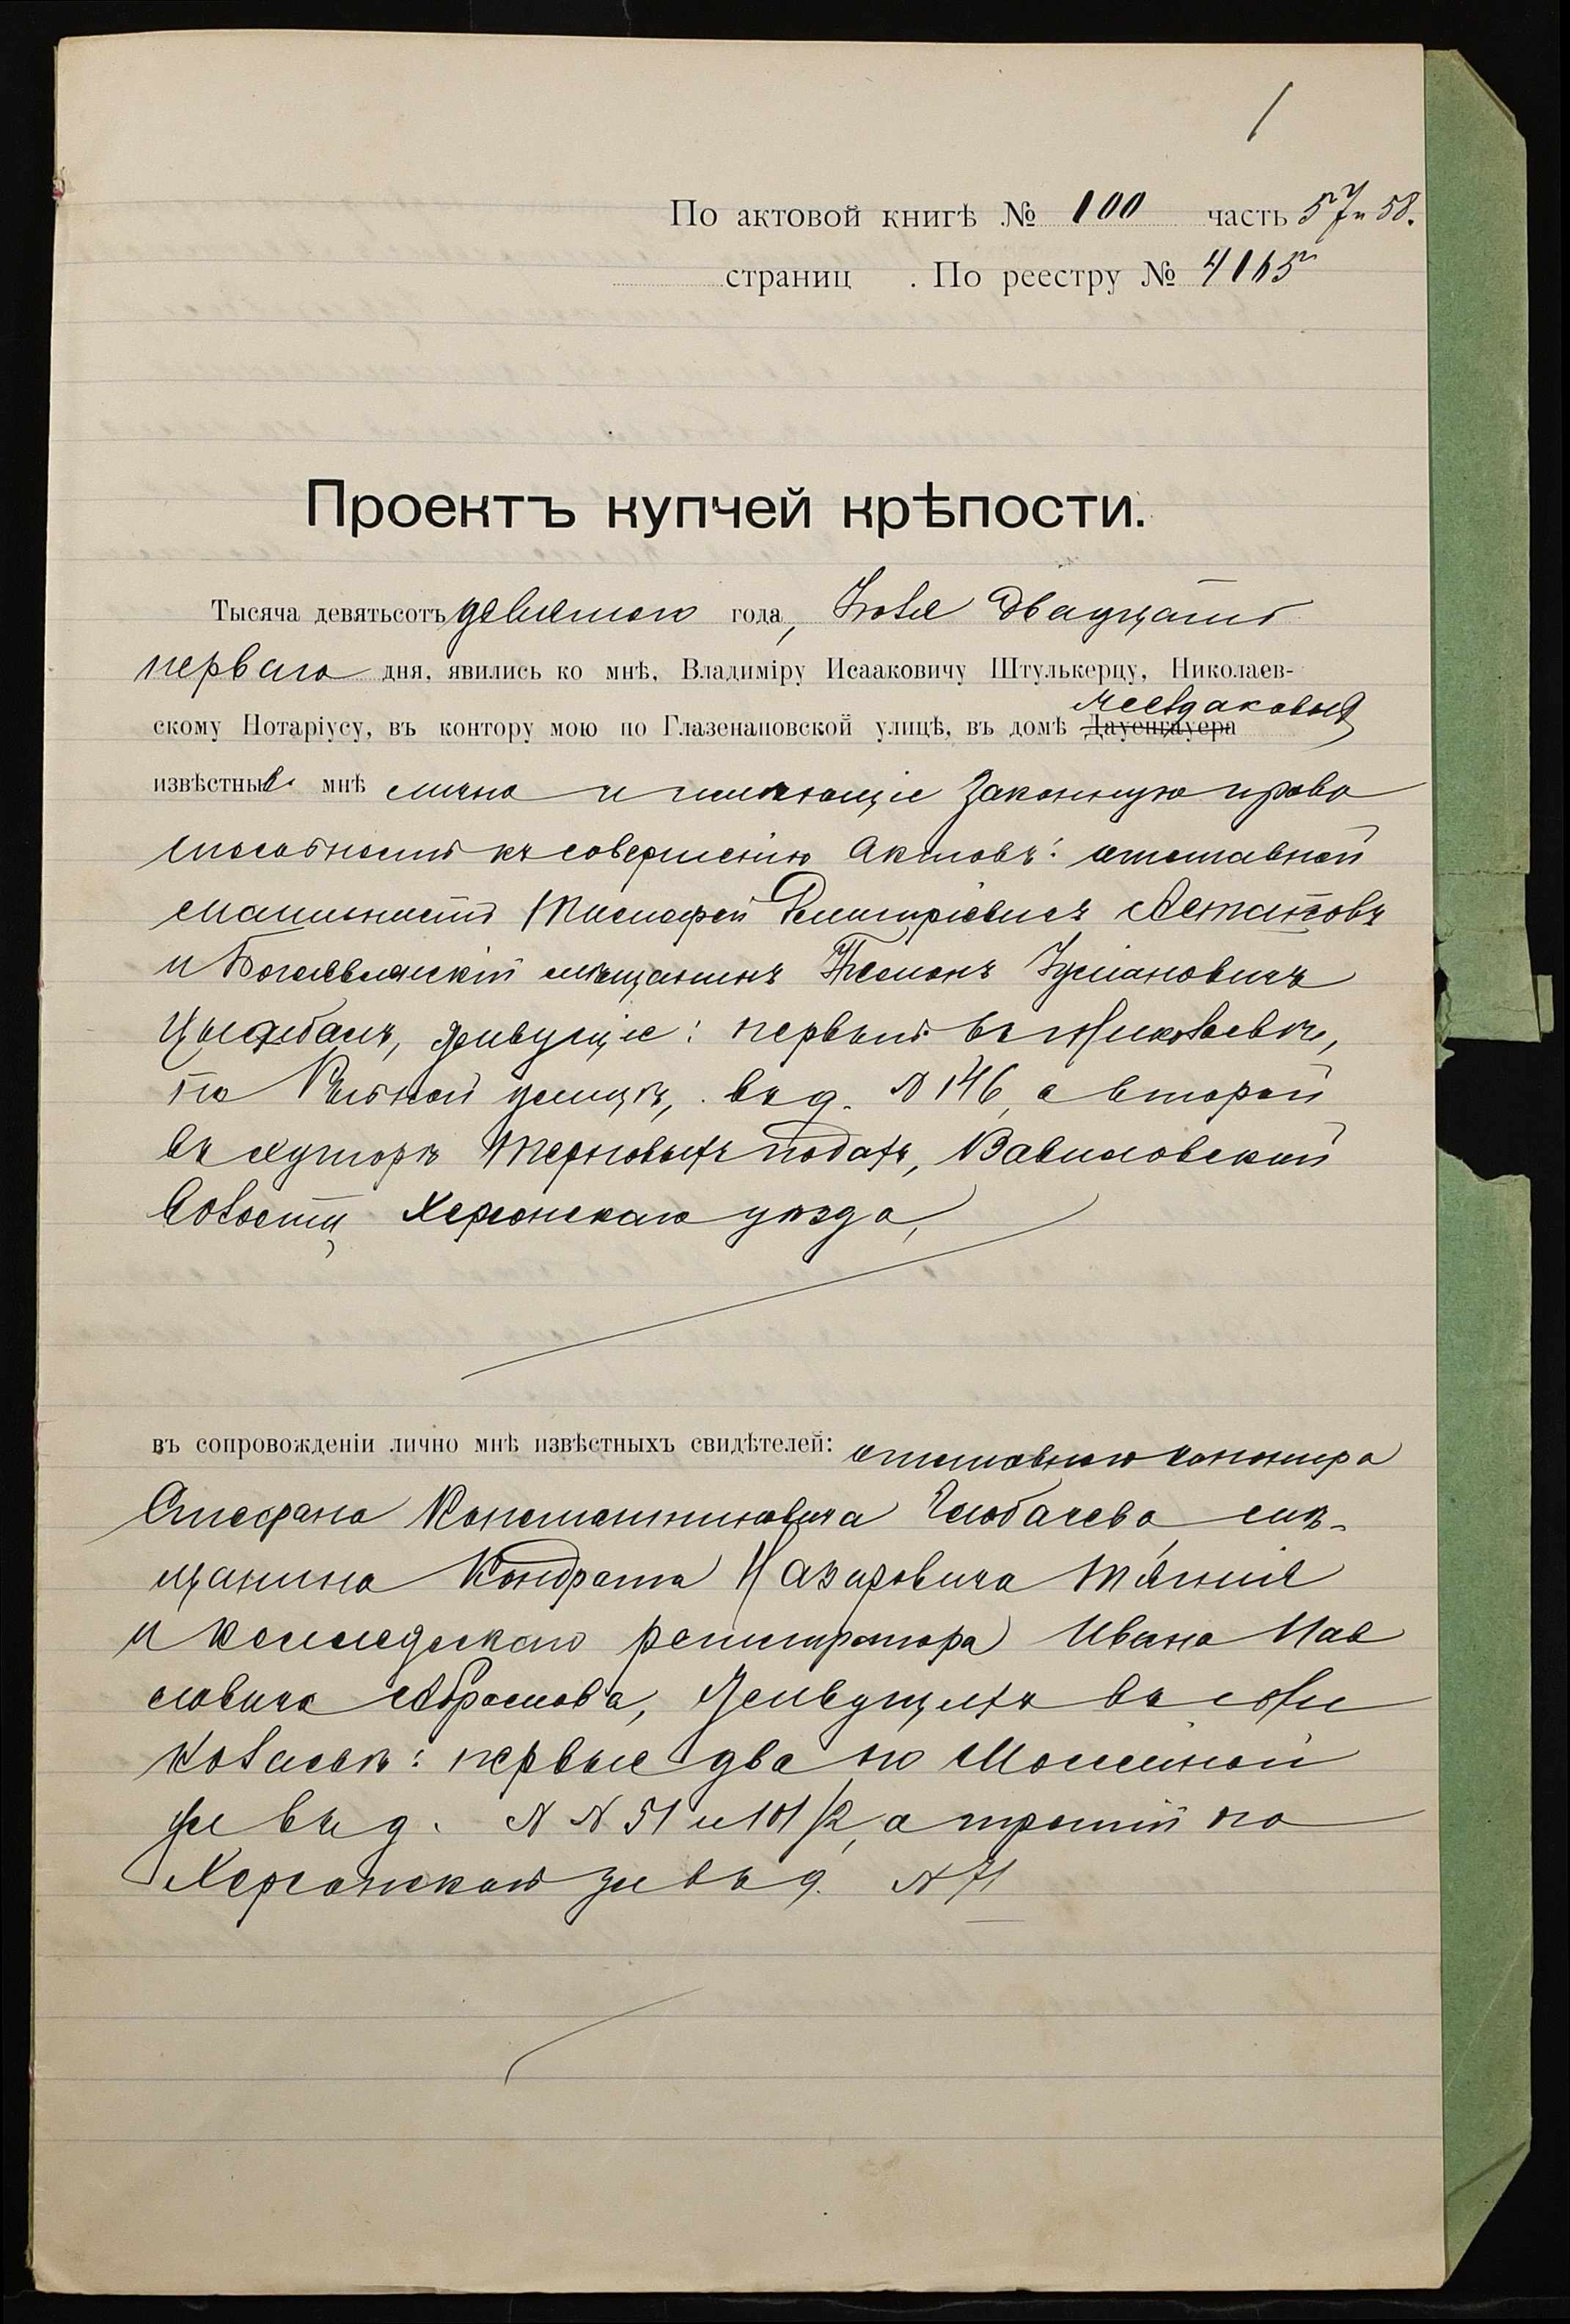 1
По актовой книгѣ № 100 часть 57 и 58.
страниц . По реестру № 4165
Проектъ купчей крѣпости.
Тысяча девятьсотъ девятого года, Іюля двадцать
перваго дня, явились ко мнѣ, Владиміру Исааковичу Штулькерцу, Николаев-
скому Нотаріусу, въ контору мою по Глазенаповской улицѣ, въ домѣ Дауенгауера
извѣстные мнѣ лично и имѣющіе законную право
способность къ совершенію актовъ: отставной
машинистъ Тимофей Димитріевичъ
и Богоявленскій мѣщанинъ
живущіе: первый въ Николаевѣ,
по Рыбной улицѣ, въ д. № 146, а второй
въ хуторѣ Терновыхъ подахъ, Вавиловской
волости Херсонскаго уѣзда,
въ сопровожденіи лично мнѣ извѣстныхъ свидѣтелей: отставного канонира
Стефана Константиновича мѣ-
щанина Кондрата Назаровича
и коллежскаго регистратора Ивана Пав
ловича Абрамова, живущихъ въ г. Ни
колаевѣ: первые два по
ул въ д. № № 51 и 101/2, а третій по
Херсонской ул въ д. № 71